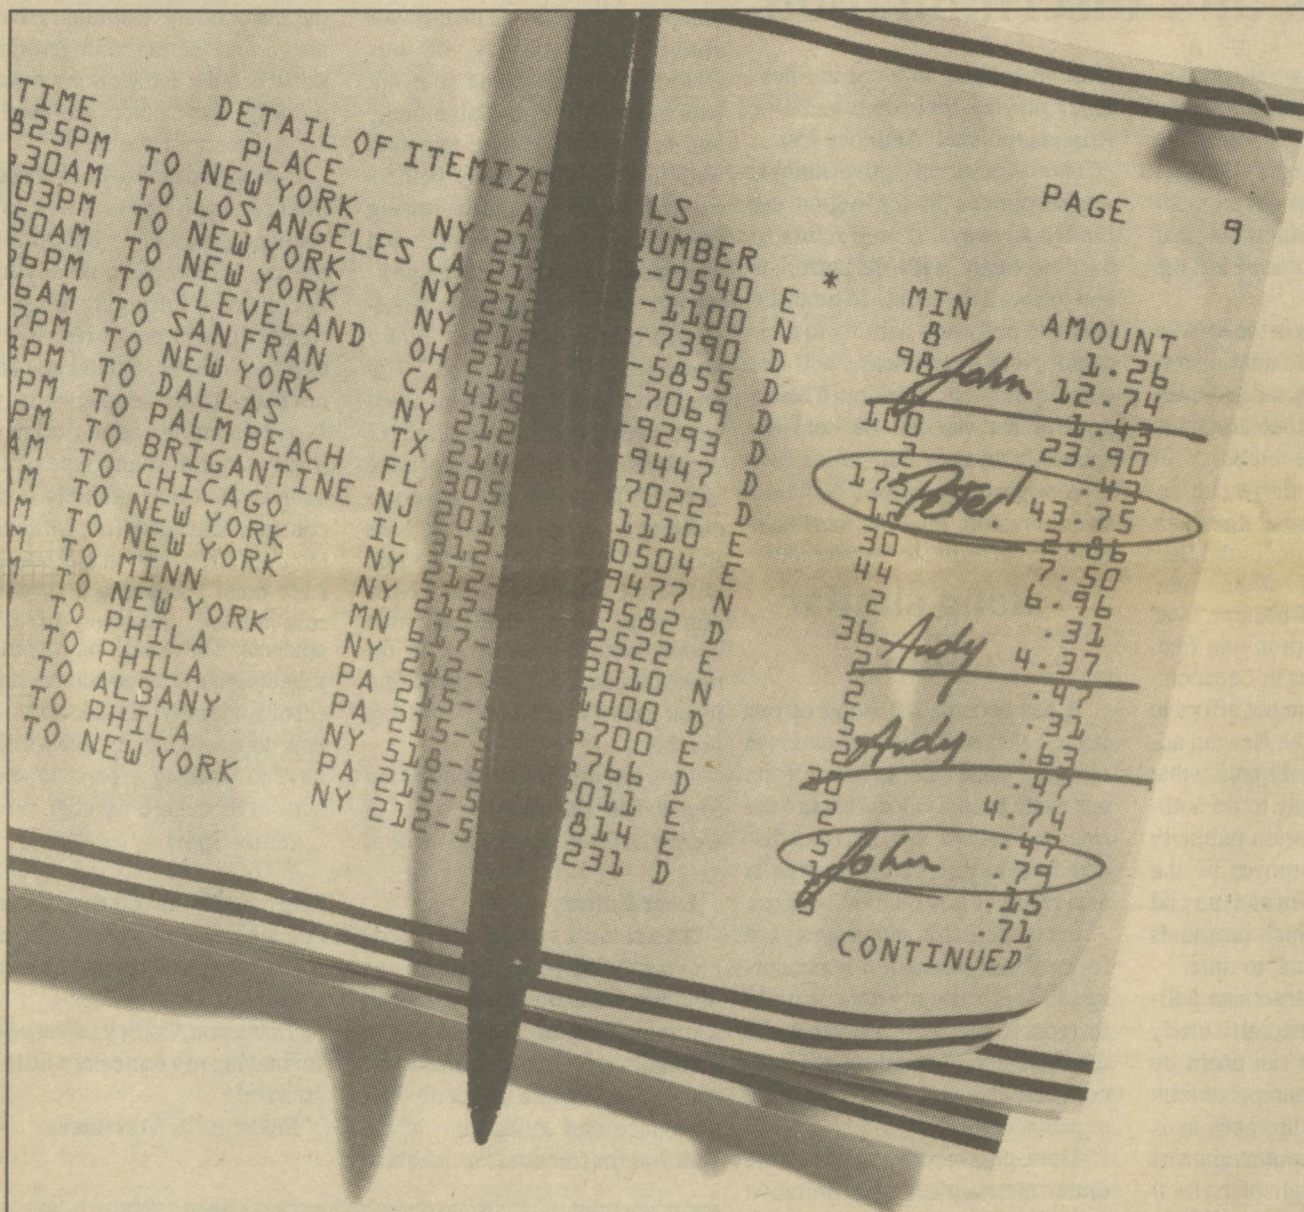 DETAIL OF ITEMIZE LS PAGE 9
TIME PLACE NUMBER * MIN AMOUNT
825PM TO NEW YORK NY 21 -0540 E 8 1.26
30AM TO LOS ANGELES CA 21 -1100 N 98 12.74
John
03PM TO NEW YORK NY 212 -7390 D 1.43
50AM TO NEW YORK NY 212 -5855 D 100 23.90
56PM TO CLEVELAND OH 216 -7069 D 2 .43
6AM TO SAN FRAN CA 415 -9293 D 175 43.75
Peter!
7PM TO NEW YORK NY 212 -9447 D 12 2.86
PM TO DALLAS TX 214 7022 D 30 7.50
PM TO PALM BEACH FL 305 1110 E 44 6.96
PM TO BRIGANTINE NJ 201 0504 E 2 .31
AM TO CHICAGO IL 312 9477 N 36 4.37
Andy
M TO NEW YORK NY 212 9582 D 2 .47
M TO NEW YORK NY 212- 2522 E 2 .31
M TO MINN MN 617- 2010 N 5 .63
Andy
M TO NEW YORK NY 212- 1000 D 2 .47
TO PHILA PA 215- 700 E 30 4.74
TO PHILA PA 215- 766 D 2 .47
TO ALBANY NY 518- 011 E 5 .79
John
TO PHILA PA 215-5 814 E 1 .15
TO NEW YORK NY 212-5 231 D .71
CONTINUED